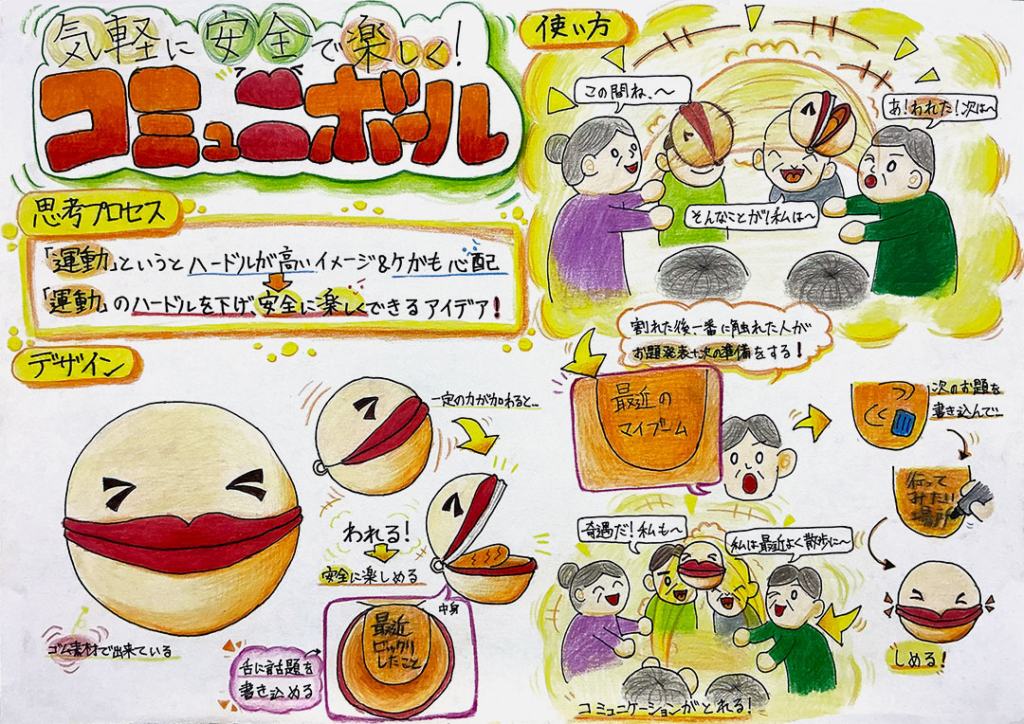 気軽に安全で楽しく!
コミュニボール
思考プロセス
「運動」というとハードルが高いイメージ&ケガも心配
「運動」のハードルを下げ、安全に楽しくできるアイデア!
デザイン
一定の力が加わると…
われる!
安全に楽しめる
中身
最近
ビックリ
したこと
舌に話題を
書き込める
ゴム素材で出来ている
使い方
この間ね、〜
あ!われた!次は〜
そんなことが!私は〜
割れた後一番に触れた人が
お題発表+次の準備をする!
最近の
マイブーム
次のお題を
書き込んで…
行って
みたい
場所
しめる!
奇遇だ!私も〜
私は最近よく散歩に〜
コミュニケーションがとれる!